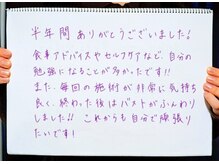 半年間ありがとうございました!
食事アドバイスやセルフケアなど、自分の
勉強になることが多かったです!!
また、毎回の施術が非常に気持ち
良く、終わった後はバストがふんわり
しました!! これからも自分で頑張り
たいです!